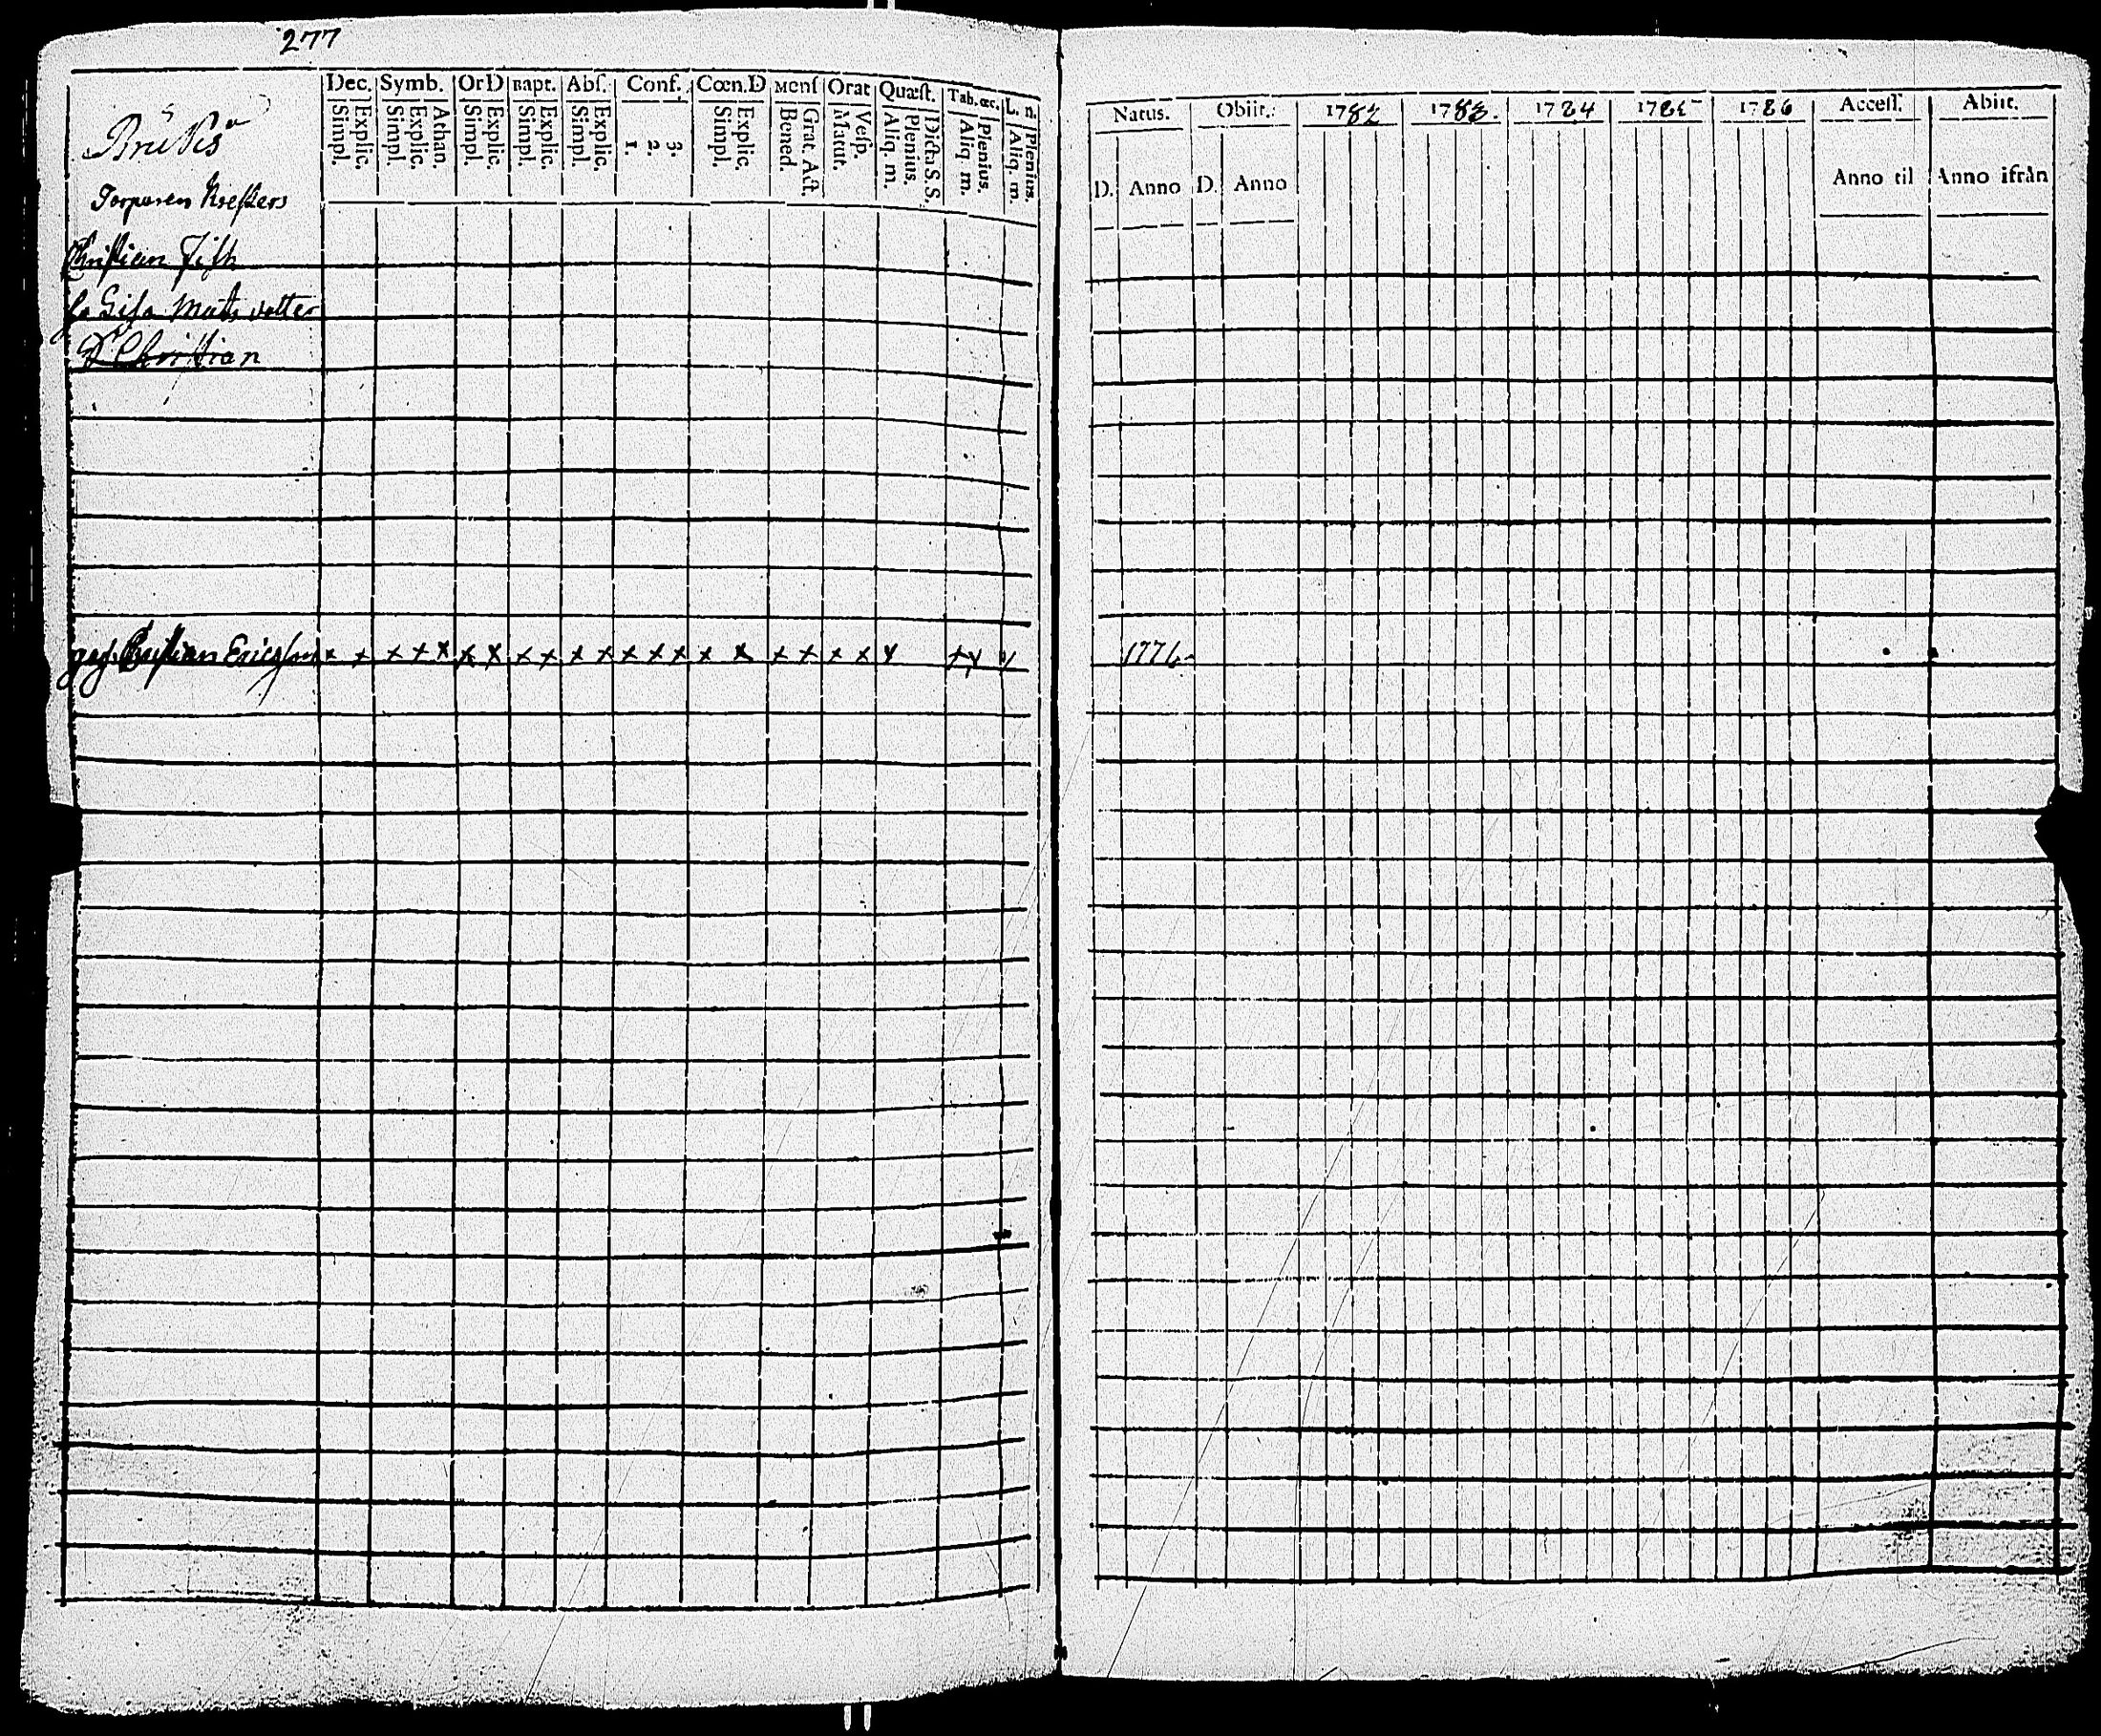 277
Dec. Symb. OrD Bapt. Abſ. Conf. Cœn.D Menſ Orat Quæſt. Tab. œc. L. n.
Simpl. Explic. Simpl. Explic. Athan. Simpl. Explic. Simpl. Explic. Simpl. Explic. 1. 2. 3. Simpl. Explic. Bened. Grat. Act. Matut. Veſp. Aliq. m. Plenius. Dicta S.S. Aliq. m. Plenius. Aliq. m. Plenius.
Torparen
Christian
Lisa Mats dotter
Dr Christian
Christian Ericsson x x x x x x x x x x x x x x x x x x x x x x x x
Natus. Obiit. 1782 1783. 1784 1785 1786 Acceſſ. Abiit.
D. Anno D. Anno Anno til Anno ifrån
1776